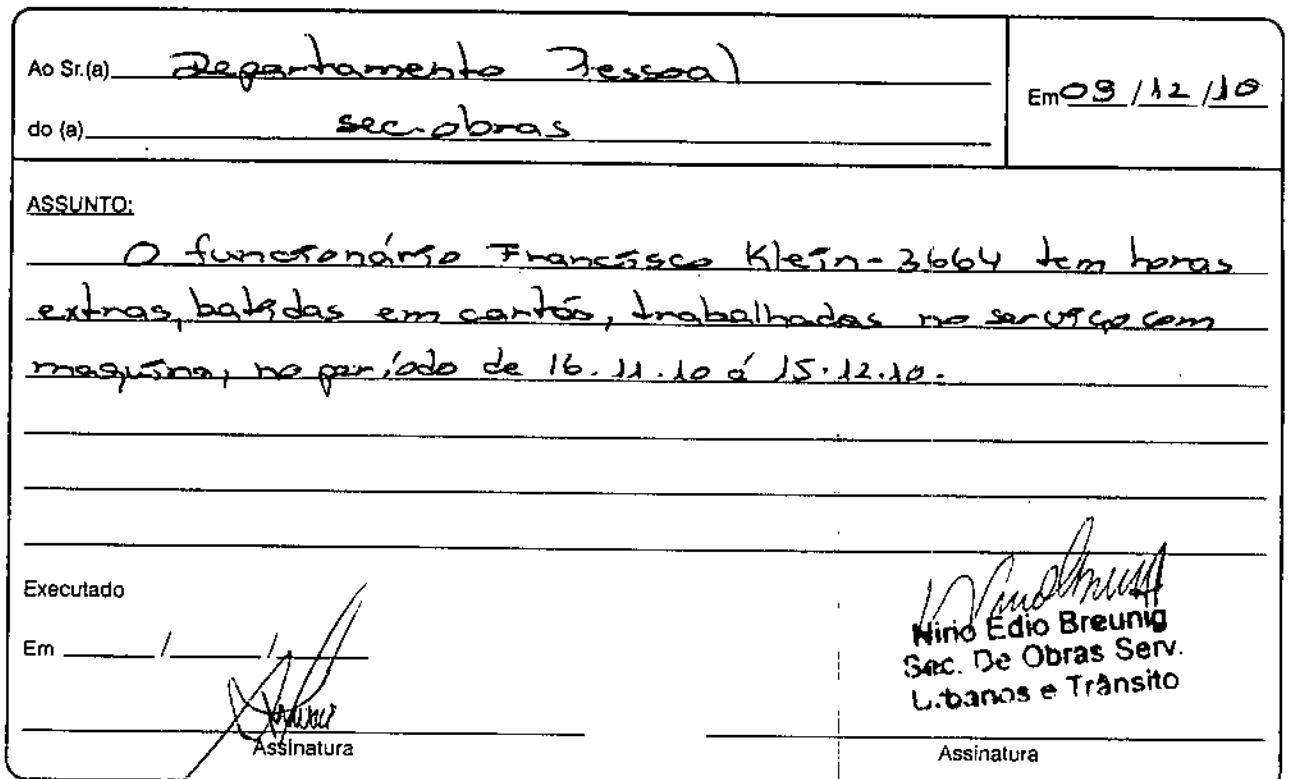 Ao Sr.(a) Departamento Pessoal
Em 09/12/10
do (a) sec. obras
ASSUNTO:
O funcionário Francisco Klein - 3664 tem horas
extras, batidas em cartão, trabalhadas no serviço com
maquina, no período de 16.11.10 á 15.12.10.
Executado
Em / /
Nirio Edio Breunig
Sec. De Obras Serv.
Urbanos e Trânsito
Assinatura
Assinatura